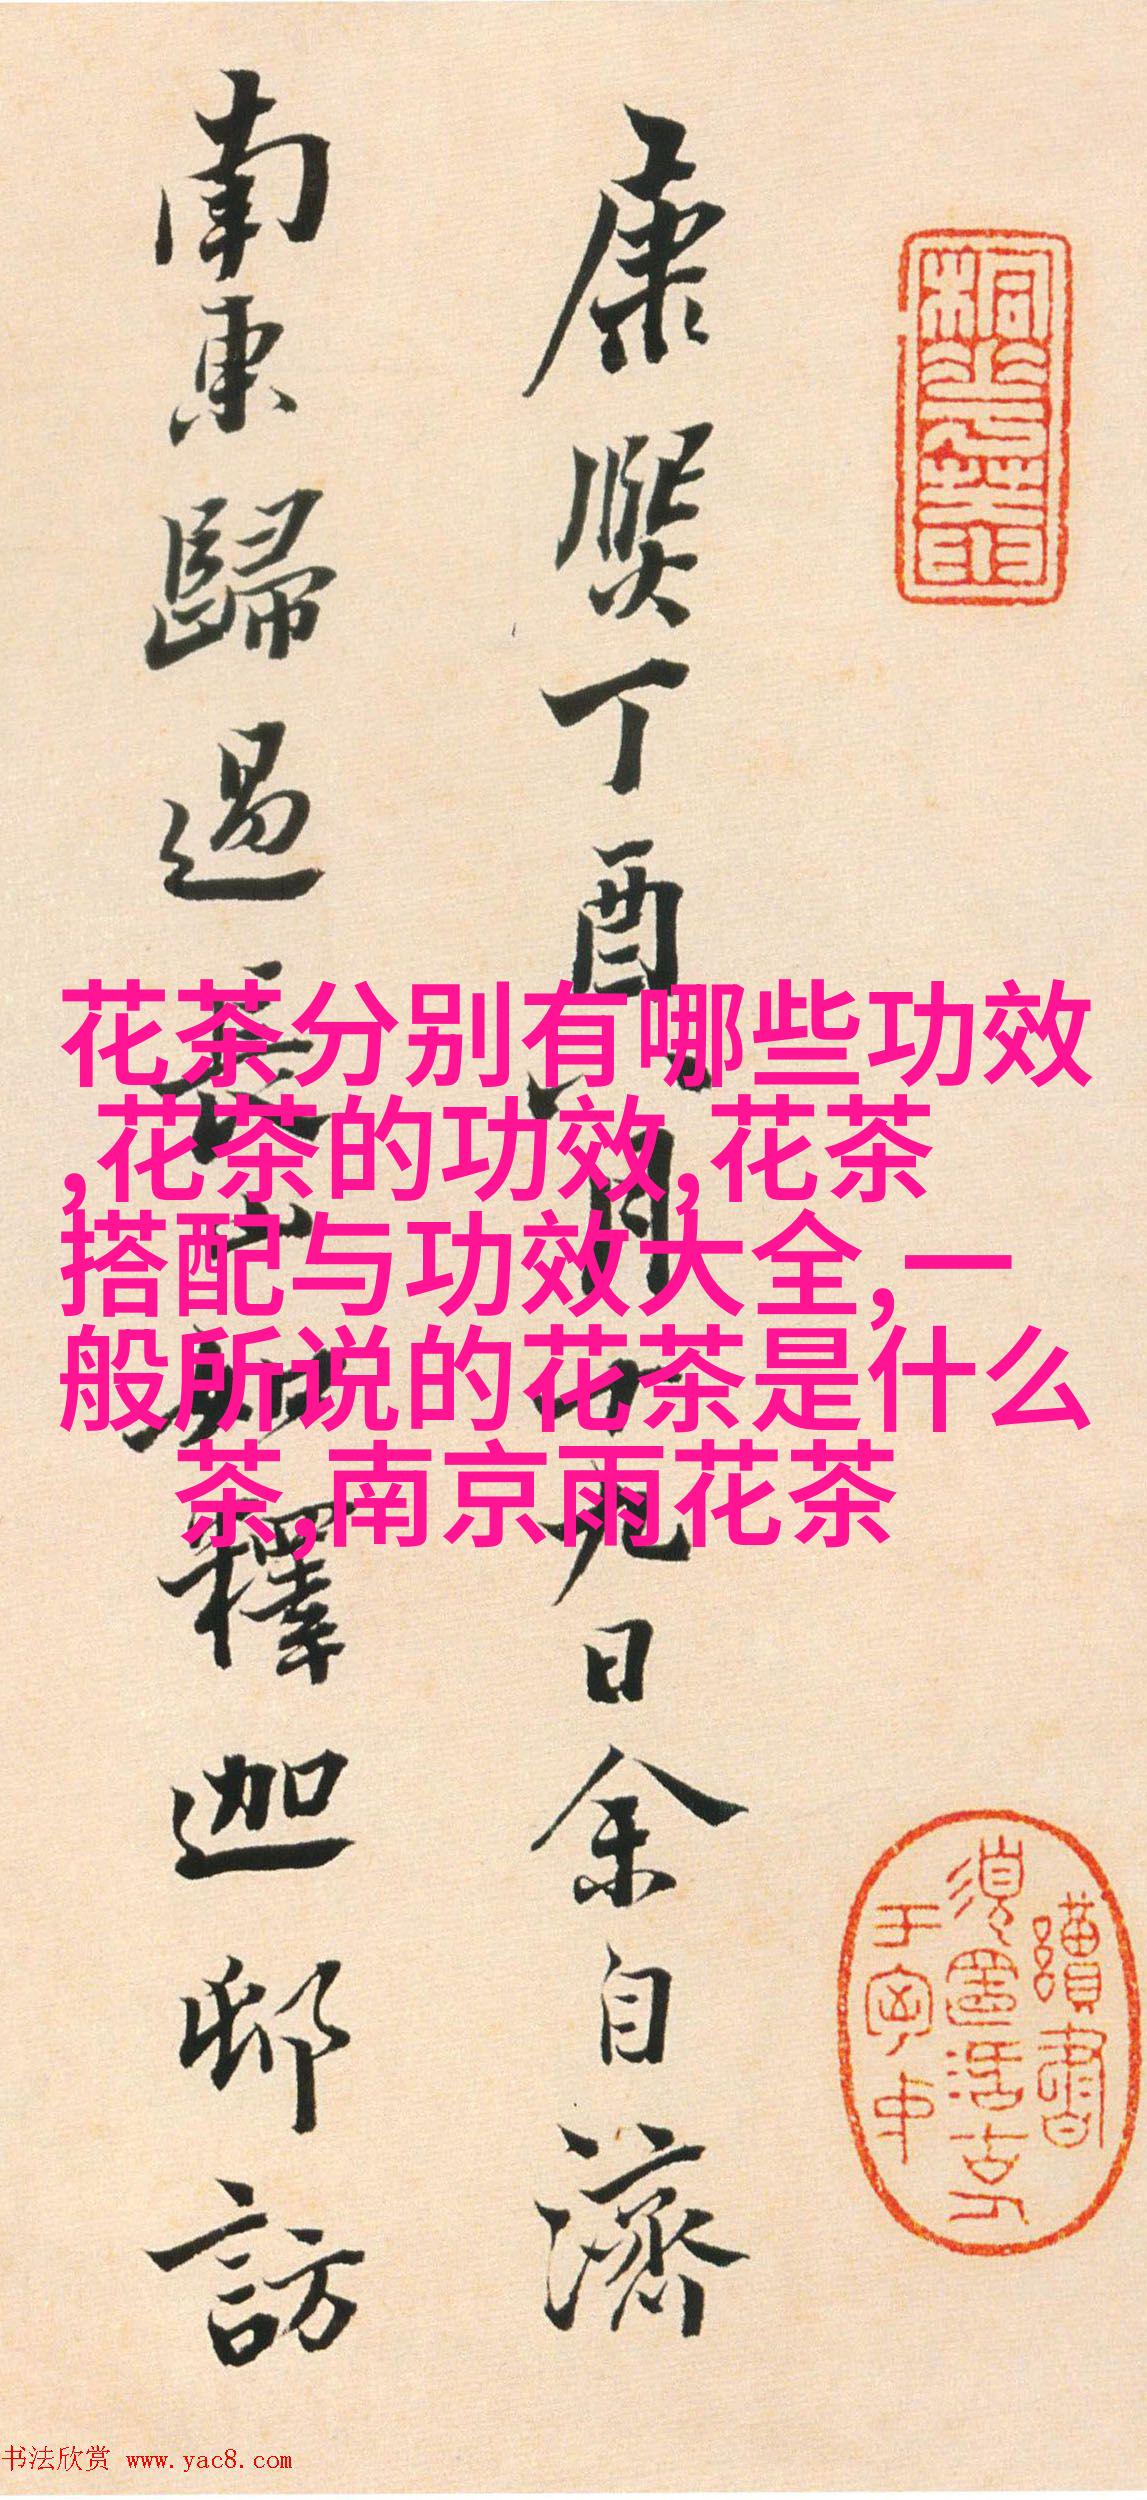 康熙丁酉八月十九日余自濟
南東歸過長山知釋迦邨訪
花茶分别有哪些功效
,花茶的功效,花茶
搭配与功效大全,一
般所说的花茶是什么
茶,南京雨花茶
书法欣赏 www.yac8.com